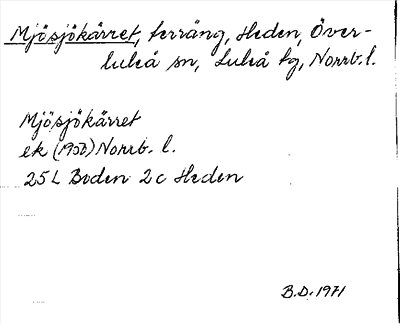 Mjösjökärret, terräng, Heden, Över-
luleå sn, Luleå tg, Norrb. l.
Mjösjökärret
ek (1950) Norrb. l.
25L Boden 2c Heden
B.D. 1971